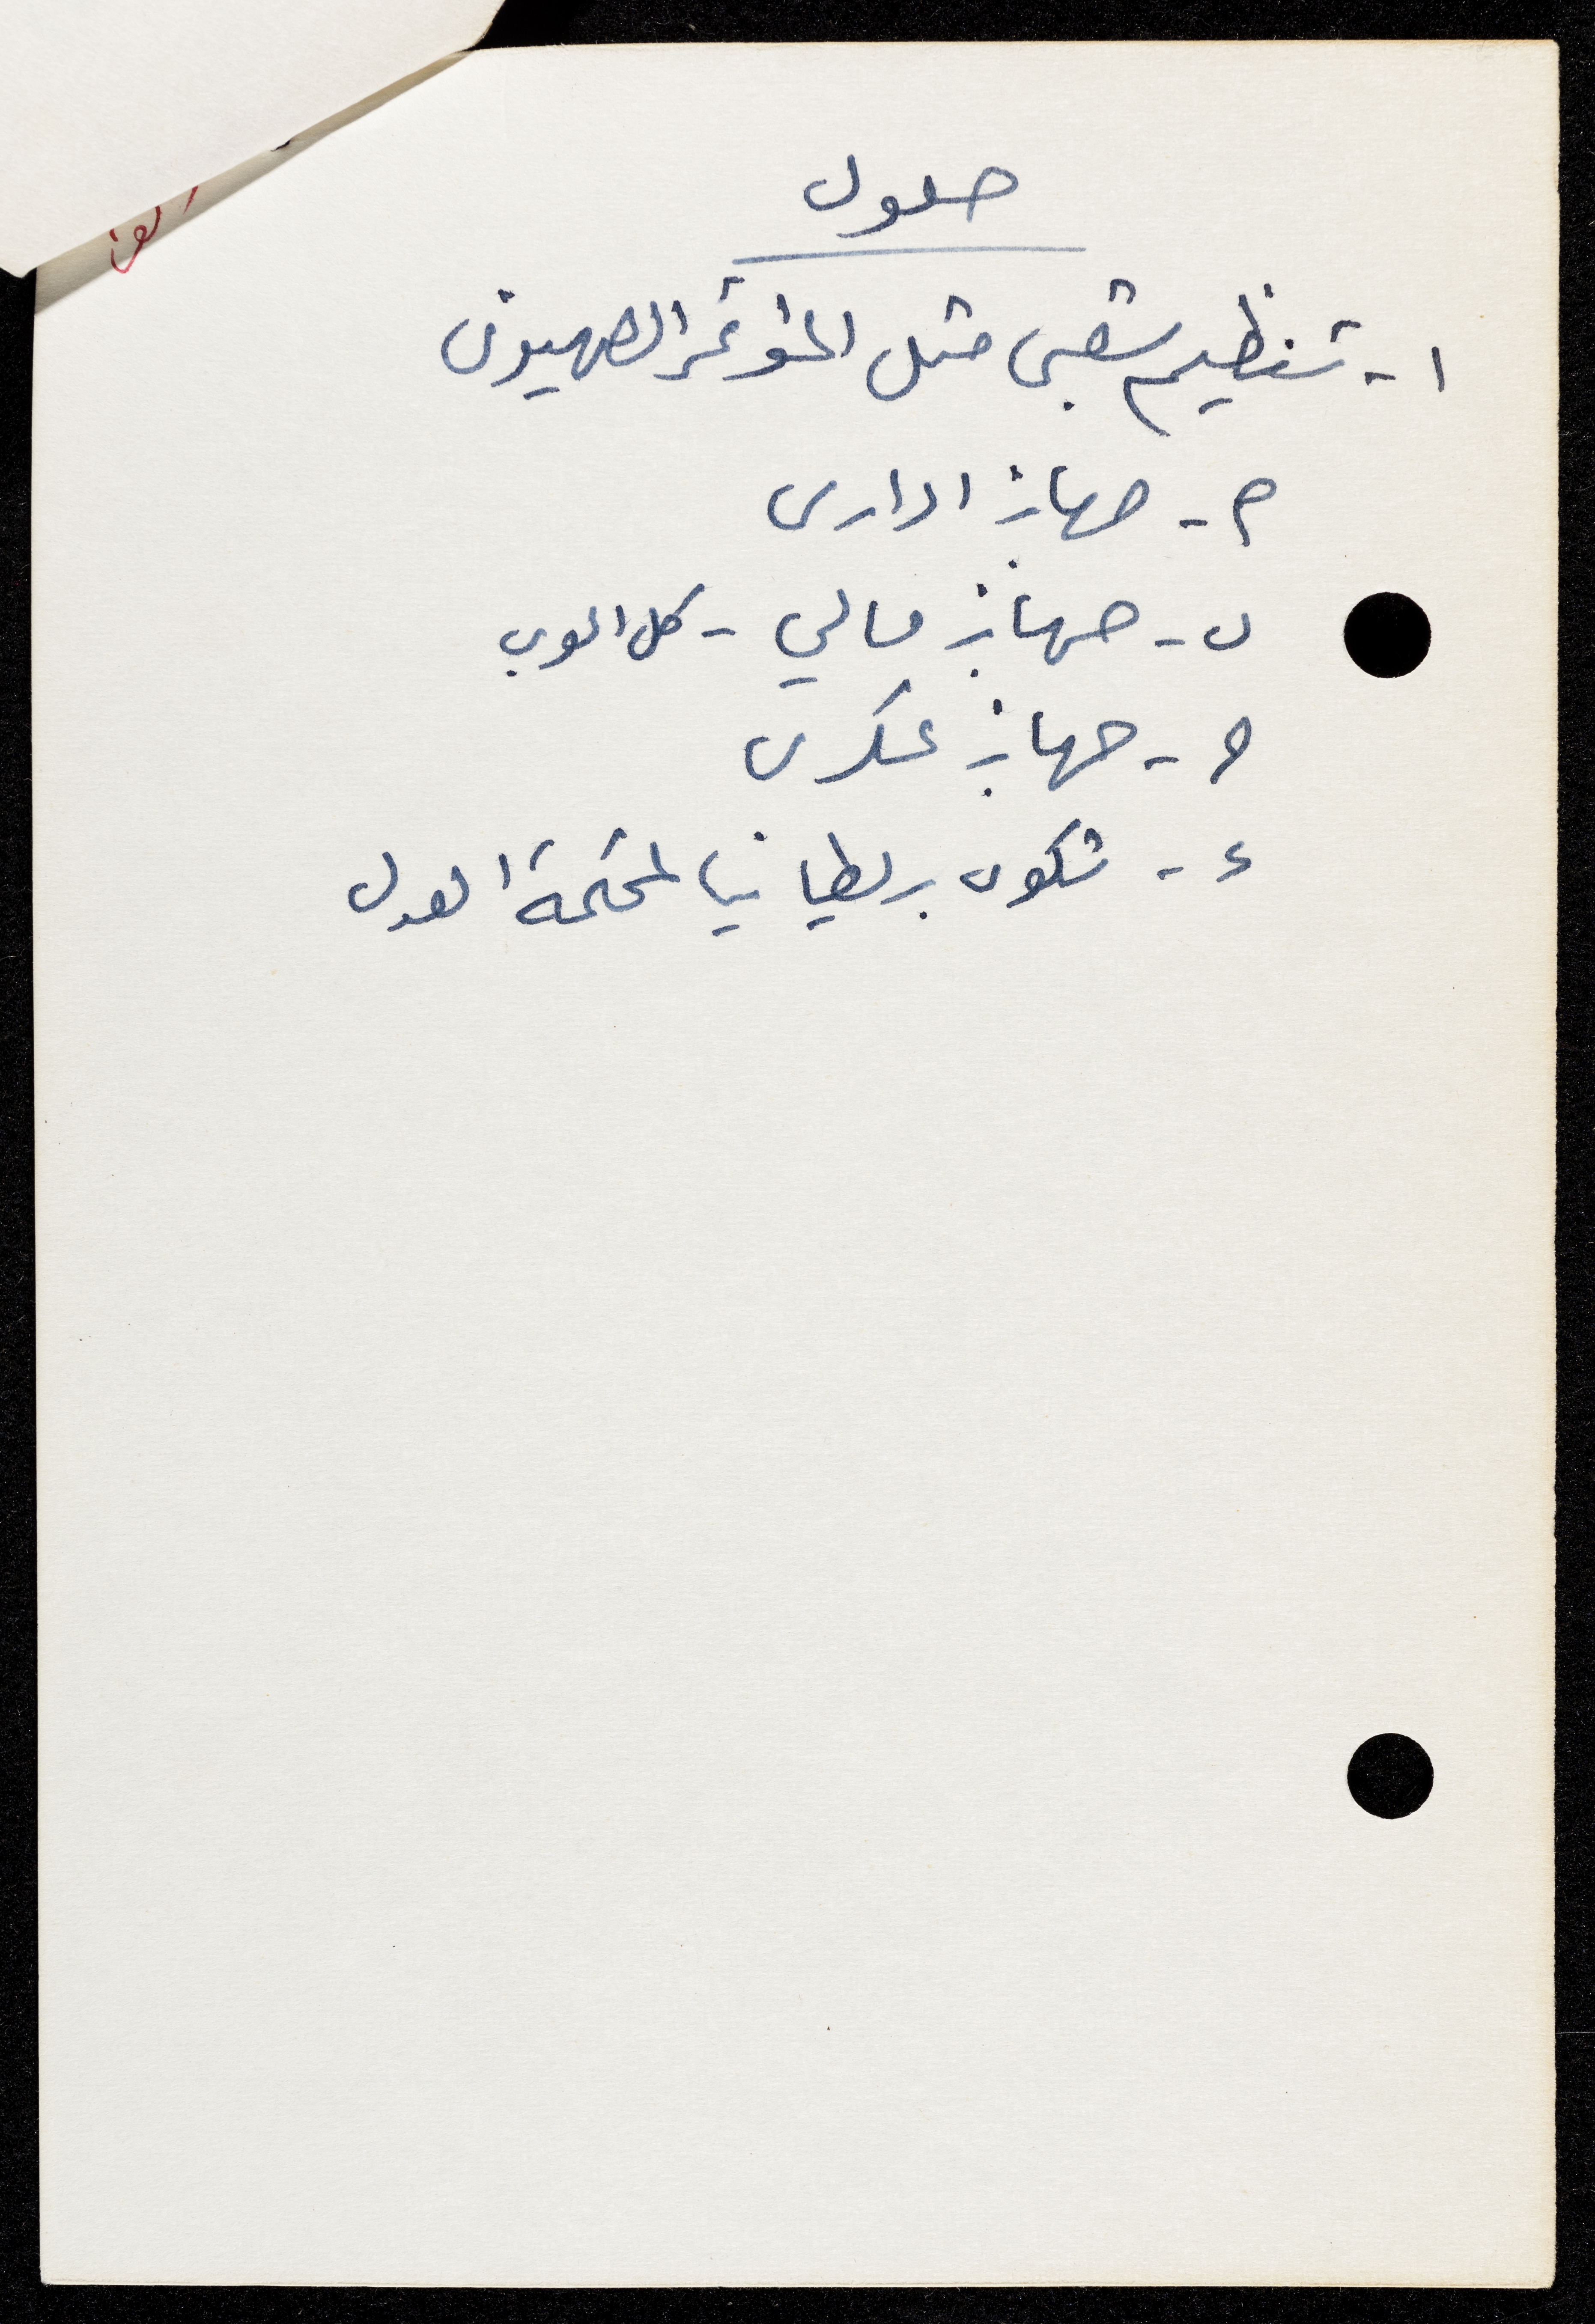 حلول
١- تنظيم شعبى مثل المؤتمر الصهيونى
م- جهاز ادارى
ب- جهاز مالي - كل العرب
ج- جهاز عسكرى
د- شكوى بريطانيا لمحكمة العدل